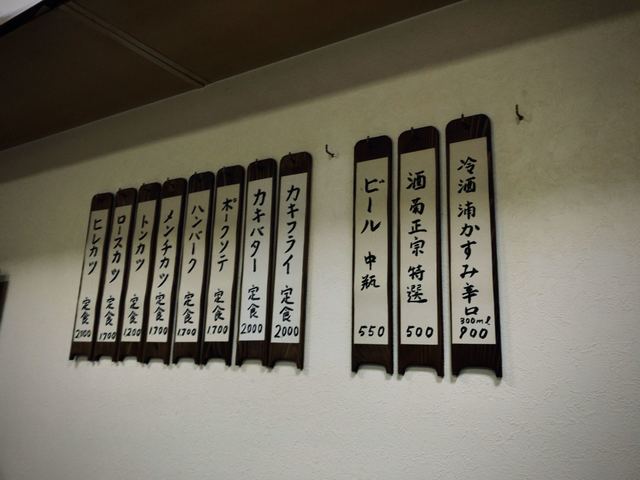 冷酒 浦かすみ 辛口
300ml
900
酒 菊正宗 特選
500
ビール 中瓶
550
カキフライ 定食
2000
カキバター 定食
2000
ポークソテ 定食
1700
ハンバーク 定食
1700
メンチカツ 定食
1700
トンカツ 定食
1200
ロースカツ 定食
1700
ヒレカツ 定食
2000